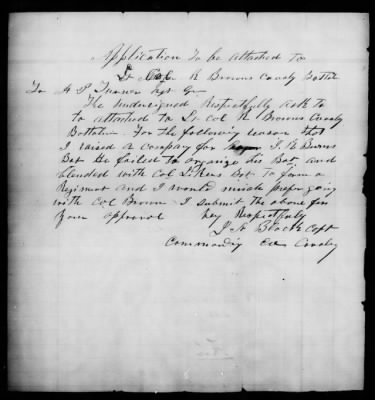 Application to be attached to
Lt Col R Browns Cavaly Battel
To A P Turner Agt G
The undersigned Respectfully ask to
to attached to Lt Col R Browns Cavaly
Battalion. For the following reason that
I raised a company for J. R Burns
Bat He failed to organize his Bat and
blended with Col Bat to form a
Regiment and I would much prefer going
with Col Brown I submit the above for
your approval Respectfully
J A Black Capt
Commandig Co Cavaly